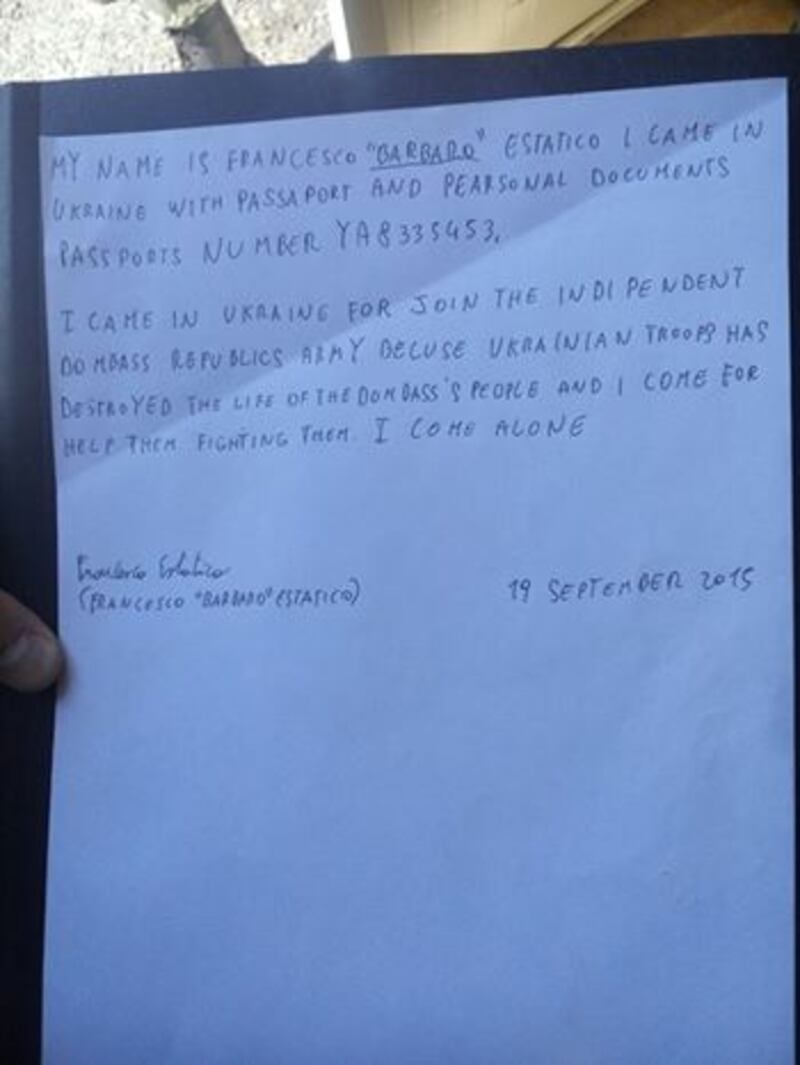 MY NAME IS FRANCESCO "BARBARO" ESTATICO I CAME IN
UKRAINE WITH PASSAPORT AND PEARSONAL DOCUMENTS
PASSPORTS NUMBER YA8335453.
I CAME IN UKRAINE FOR JOIN THE INDIPENDENT
DOMBASS REPUBLICS ARMY BECUSE UKRAINIAN TROOPS HAS
DESTROYED THE LIFE OF THE DOMBASS'S PEOPLE AND I COME FOR
HELP THEM FIGHTING THEM. I COME ALONE
Francesco Estatico
(FRANCESCO "BARBARO" ESTATICO)
19 SEPTEMBER 2015